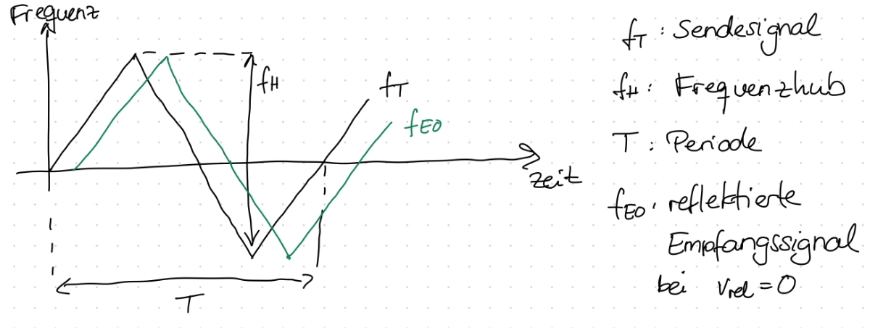 Frequenz
fH
fT
fEO
zeit
T
fT : Sendesignal
fH : Frequenzhub
T : Periode
fEO : reflektierte
Empfangssignal
bei vrel = 0